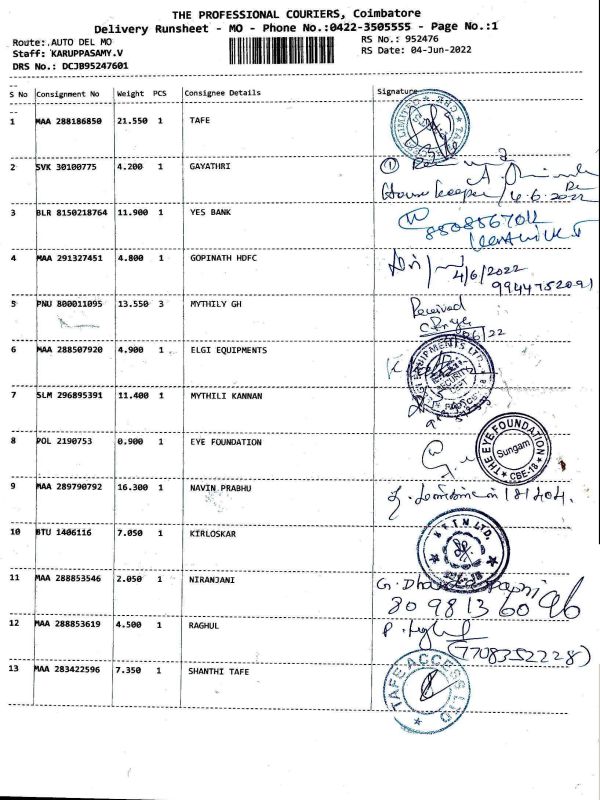 THE PROFESSIONAL COURIERS, Coimbatore
Delivery Runsheet - MO - Phone No.:0422-3505555 - Page No.:1
Route:.AUTO DEL MO
RS No.: 952476
Staff: KARUPPASAMY.V
RS Date: 04-Jun-2022
DRS No.: DCJB95247601
S No Consignment No Weight PCS Consignee Details Signature
1 MAA 288186850 21.550 1 TAFE
2 SVK 30100775 4.200 1 GAYATHRI
House keeper / 4.6.2022
3 BLR 8150218764 11.900 1 YES BANK
8508567011
4 MAA 291327451 4.800 1 GOPINATH HDFC
4/6/2022
9944752091
5 PNU 800011095 13.550 3 MYTHILY GH
Received
6 MAA 288507920 4.900 1 ELGI EQUIPMENTS
ELGI EQUIPMENTS LTD.
SECURITY
7 SLM 296895391 11.400 1 MYTHILI KANNAN
8 POL 2190753 0.900 1 EYE FOUNDATION
THE EYE FOUNDATION
Sungam
CBE-18
9 MAA 289790792 16.300 1 NAVIN PRABHU
10 BTU 1406116 7.050 1 KIRLOSKAR
11 MAA 288853546 2.050 1 NIRANJANI
12 MAA 288853619 4.500 1 RAGHUL
(7708352228)
13 MAA 283422596 7.350 1 SHANTHI TAFE
TAFE ACCESS LTD